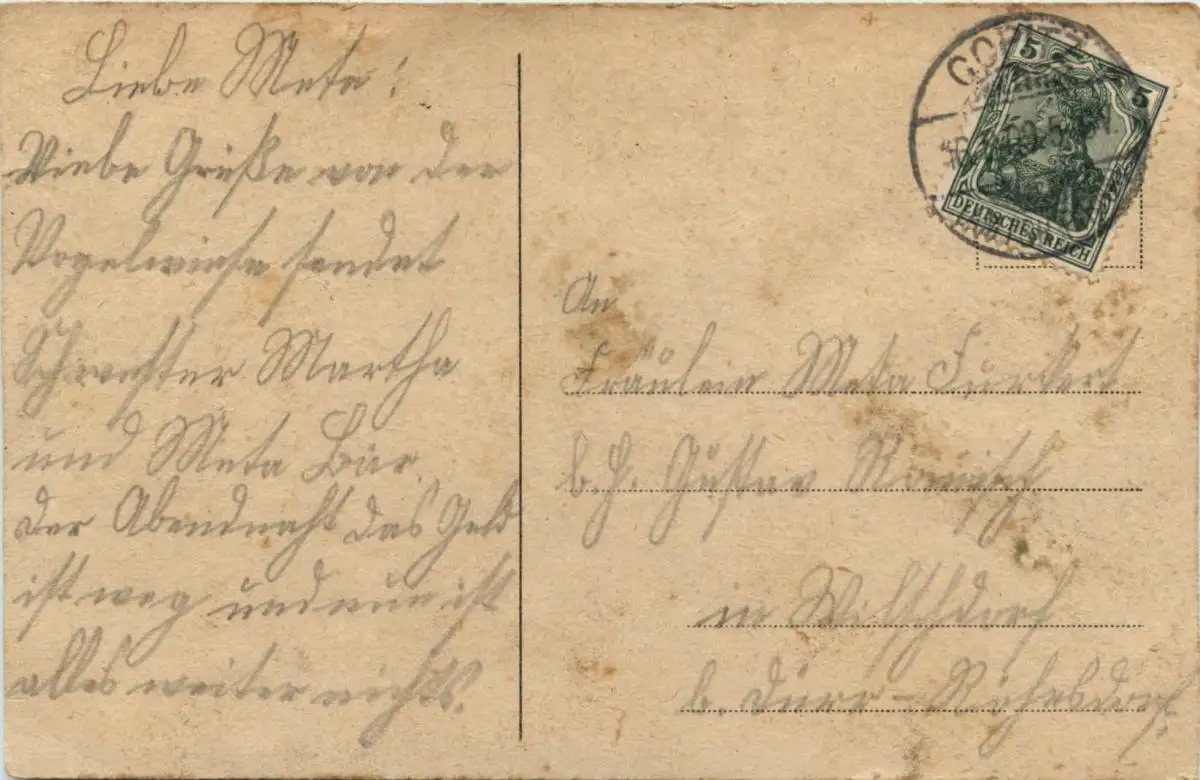 Liebe Meta!
Viele Grüße von der
Vogelwiese sendet
Schwester Martha
und Meta Bär.
der Abend naht das Geld
ist weg und nun ist
alles weiter nichts!
5 5
DEUTSCHES REICH
An
Fräulein Meta Furkert
b. H. Gustav
in Wilschdorf
b. Dürr-Röhrsdorf.